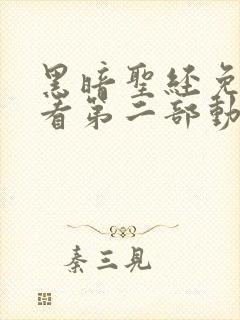 黑暗聖經免
看第二部動
秦三見